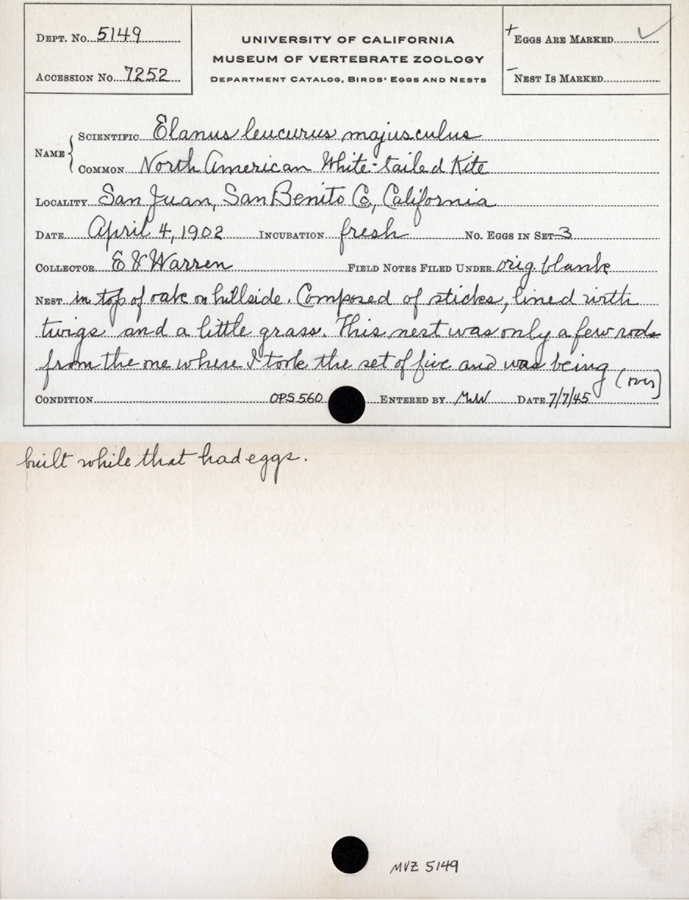 DEPT. No. 5149
ACCESSION No. 7252
UNIVERSITY OF CALIFORNIA
MUSEUM OF VERTEBRATE ZOOLOGY
DEPARTMENT CATALOG, BIRDS' EGGS AND NESTS
+ EGGS ARE MARKED ✓
- NEST IS MARKED
NAME { SCIENTIFIC Elanus leucurus majusculus
COMMON North American White-tailed Kite
LOCALITY San Juan, San Benito Co., California
DATE April 4, 1902 INCUBATION fresh No. EGGS IN SET 3
COLLECTOR E & Warren FIELD NOTES FILED UNDER orig. blank
NEST in top of oak on hillside. Composed of sticks, lined with
twigs and a little grass. This nest was only a few rods
from the one where I took the set of five and was being (over)
CONDITION OPS 560 ENTERED BY MW DATE 7/7/45
built while that had eggs.
MVZ 5149